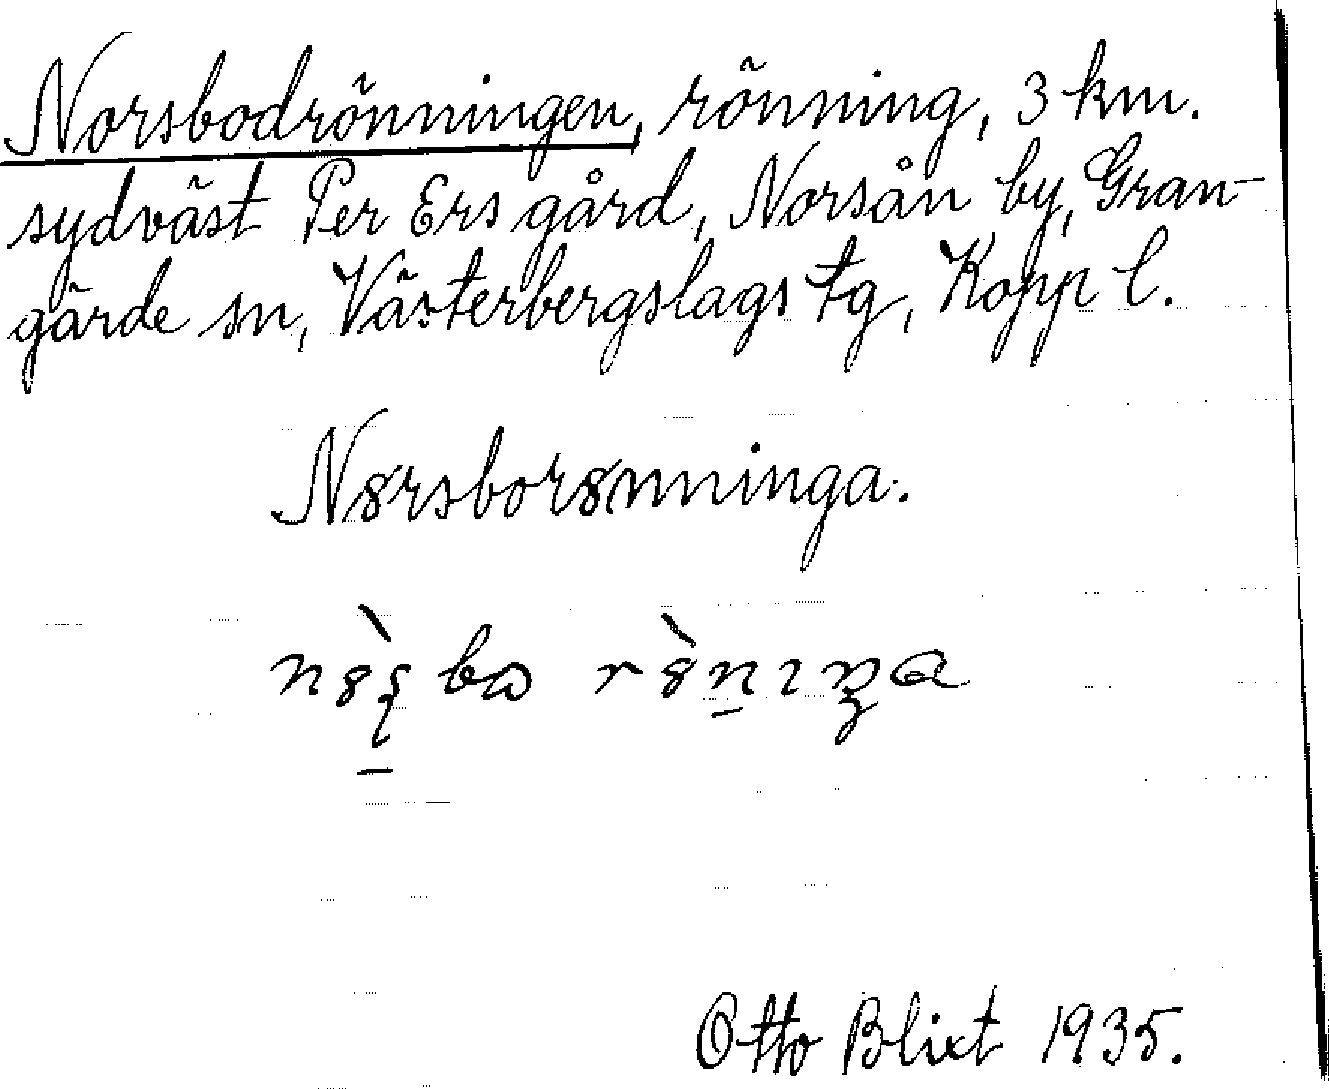 Norsbodrönningen, rönning, 3 km.
sydväst Per Ers gård, Norsån by, Gran-
gärde sn, Västerbergslags tg, Kopp l.
N8rsbor8nninga.
Otto Blixt 1935.